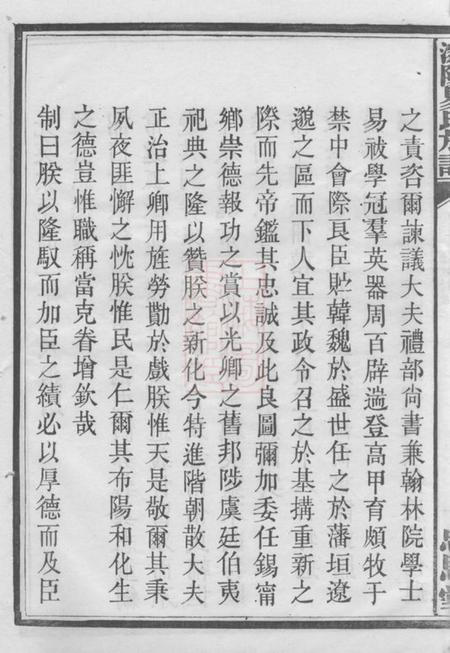 之責咨爾諫議大夫禮部尚書兼翰林院學士
易祓學冠羣英器周百辟遄登高甲育頗牧于
禁中會際良臣貯韓魏於盛世任之於藩垣遼
邈之區而下人宜其政令召之於基搆重新之
際而先帝鑑其忠誠及此良圖彌加委任錫甯
鄉崇德報功之賞以光卿之舊邦陟虞廷伯夷
祀典之隆以贊朕之新化今特進階朝散大夫
正治上卿用旌勞勩於戲朕惟天是敬爾其秉
夙夜匪懈之忱朕惟民是仁爾其布陽和化生
之德豈惟職稱當克眷增欽哉
制曰朕以隆馭而加臣之績必以厚德而及臣